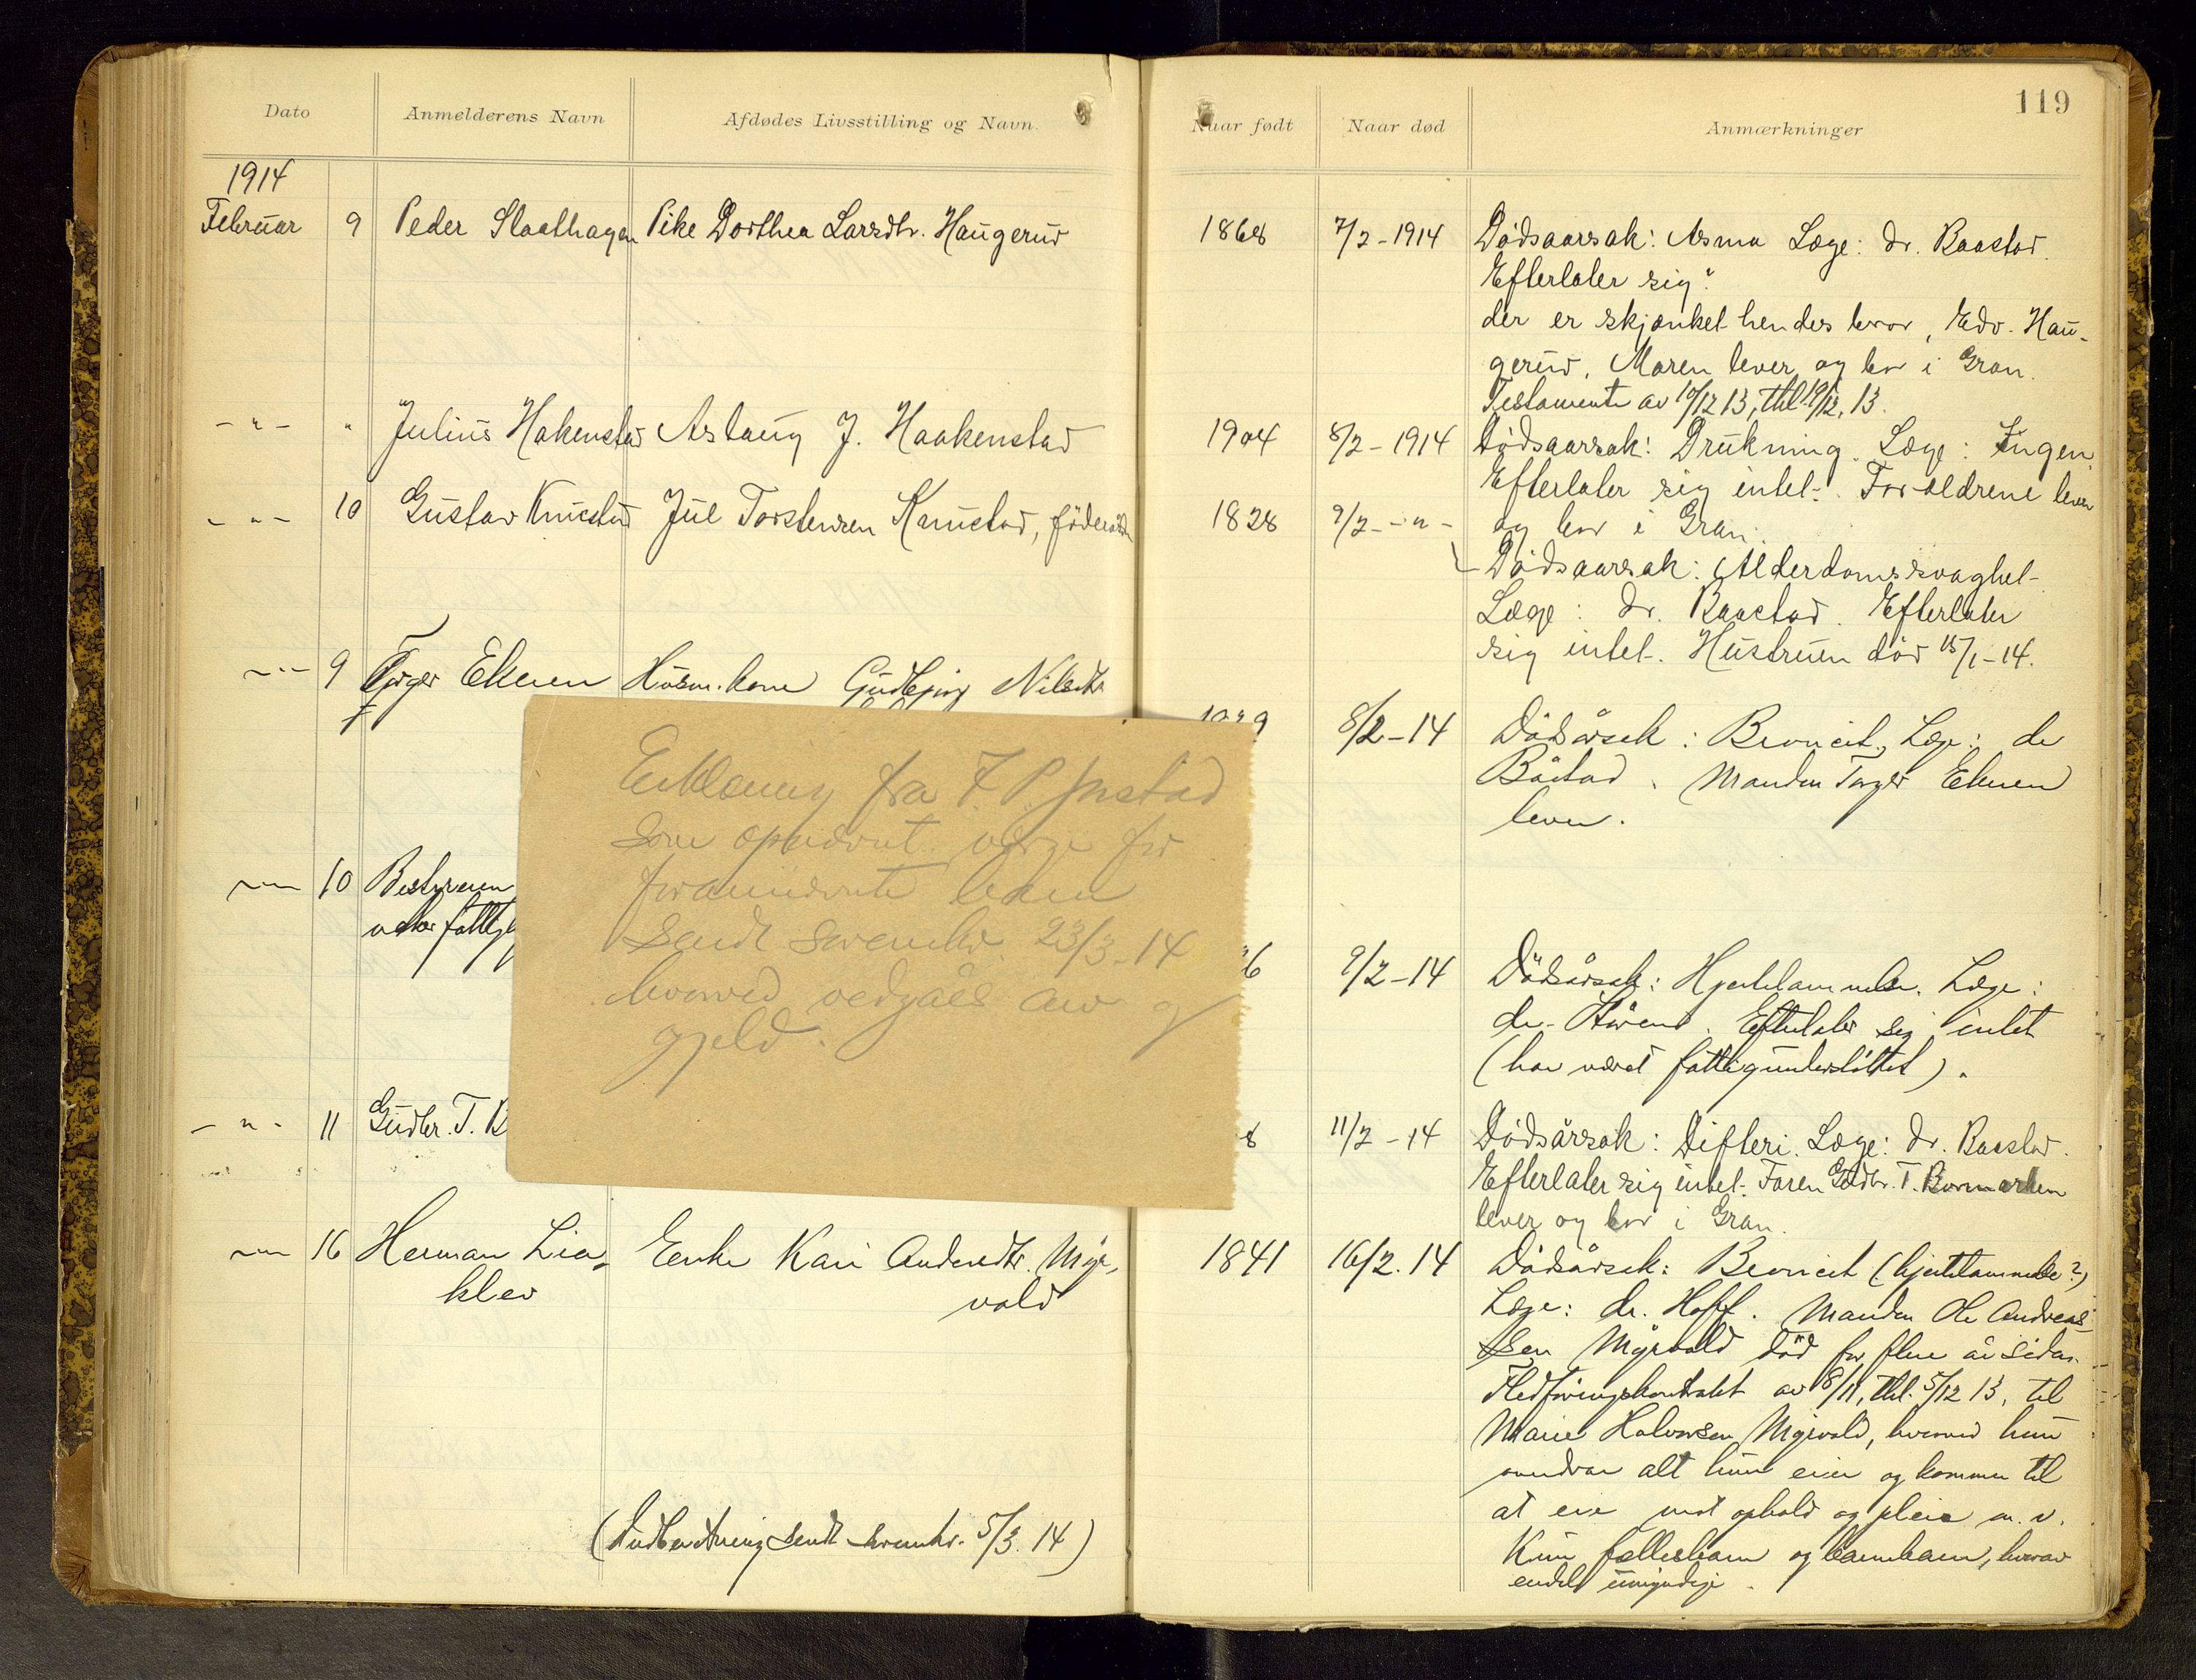 119
Dato Anmelderens Navn Afdødes Livsstilling og Navn. Naar født Naar død Anmærkninger
1914
Februar 9 Peder Staalhagen Pike Dorthea Larsdtr. Haugerud 1868 7/2-1914 Dødsaarsak: Asma Læge: Dr. Baastad.
Efterlater sig:
der er skjænket hendes bror, Edv. Hau-
gerud. Moren lever og bor i Gran.
Testamente av 10/12 13, thl. 19/12, 13.
- " - " Julius Hakenstad Aslaug J. Haakenstad 1904 8/2-1914 Dødsaarsak: Drukning. Læge: Ingen.
Efterlater sig intet. Forældrene lever
og bor i Gran.
- " - 10 Gustav Knustad Jul Torstensen Knustad, føderaad 1828 9/2 - " -
Dødsaarsak: Alderdomssvaghet
Læge: Dr. Baastad. Efterlater
sig intet. Hustruen død 15/1-14.
- " - 9 Torger Ekeren Husm. kone Gudbjørg Nilsdtr.
8/2-14 Dødsårsak: Bronchit, Læge: dr
Båstad. Manden Torger Ekeren
lever.
- " - 10 Bestyreren
9/2-14 Dødsårsak: Hjertelammelse. Læge:
dr. Efterlater sig intet
(har været fattigunderstøttet).
- " - 11 Gudbr. T. B
8 11/2-14 Dødsårsak: Difteri. Læge: Dr. Baastad.
Efterlater sig intet. Faren Gudbr. T.
lever og bor i Gran.
- " - 16 Herman Lia- Enke Kari Andersdtr. Myr- 1841 16/2.14 Dødsårsak: Bronchit (hjertelammelse?)
klev vold
Læge: dr. Hoff. Manden Ole Andreas-
sen Myrvold død for flere år siden.
Fledføringskontrakt av 8/11, thl. 5/12 13, til
Marie Halvorsen Myrvold, hvorved hun
overdrar alt hun eier og kommer til
at eie mot ophold og pleie m.v.
Kun fællesbarn og barnebarn, hvorav
endel umyndige.
(Indberetning sendt sorenskr. 5/3. 14)
Erklæring fra
som opnævnt verge for
forannævnte
sendt sorenskr. 23/3-14
hvorved vedgåes arv og
gjeld.